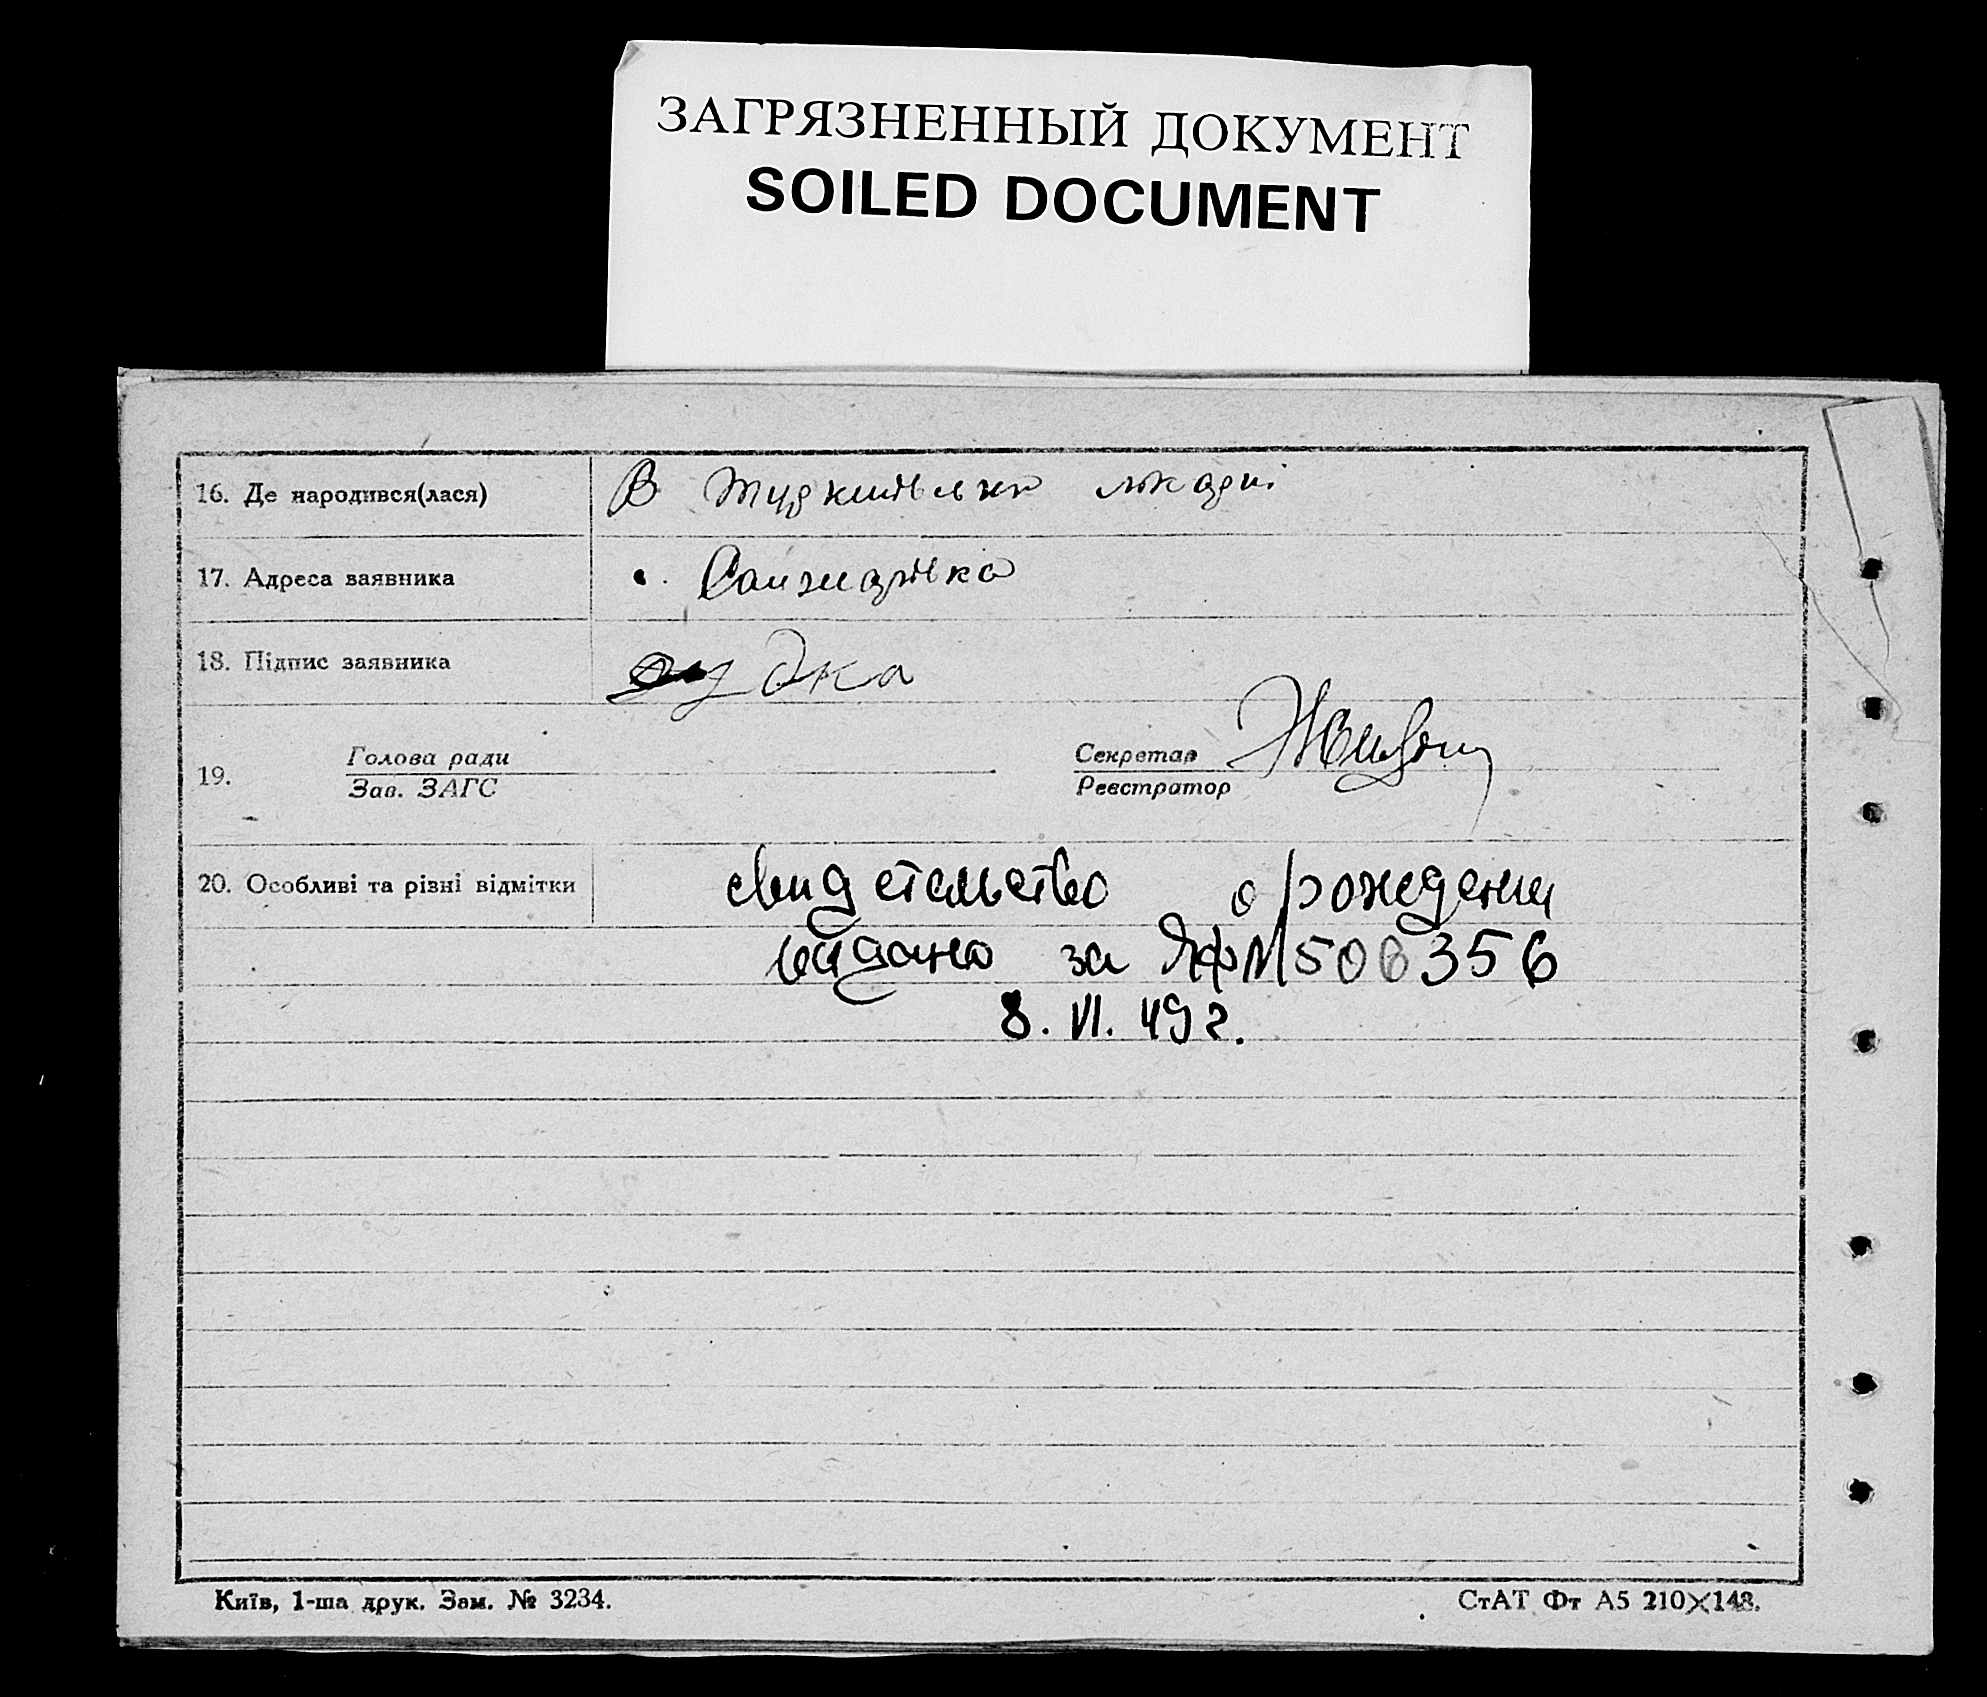 ЗАГРЯЗНЕННЫЙ ДОКУМЕНТ
SOILED DOCUMENT
16. Де народився(лася) В
17. Адреса заявника с. Санжарівка
18. Підпис заявника
19. Голова ради Секретар
Зав. ЗАГС Реєстратор
20. Особливі та різні відмітки свидетельство о рождении
видано за ЯФ № 506356
8. VI. 49 г.
Київ, 1-ша друк. Зам. № 3234. СтАТ Фт А5 210×148.